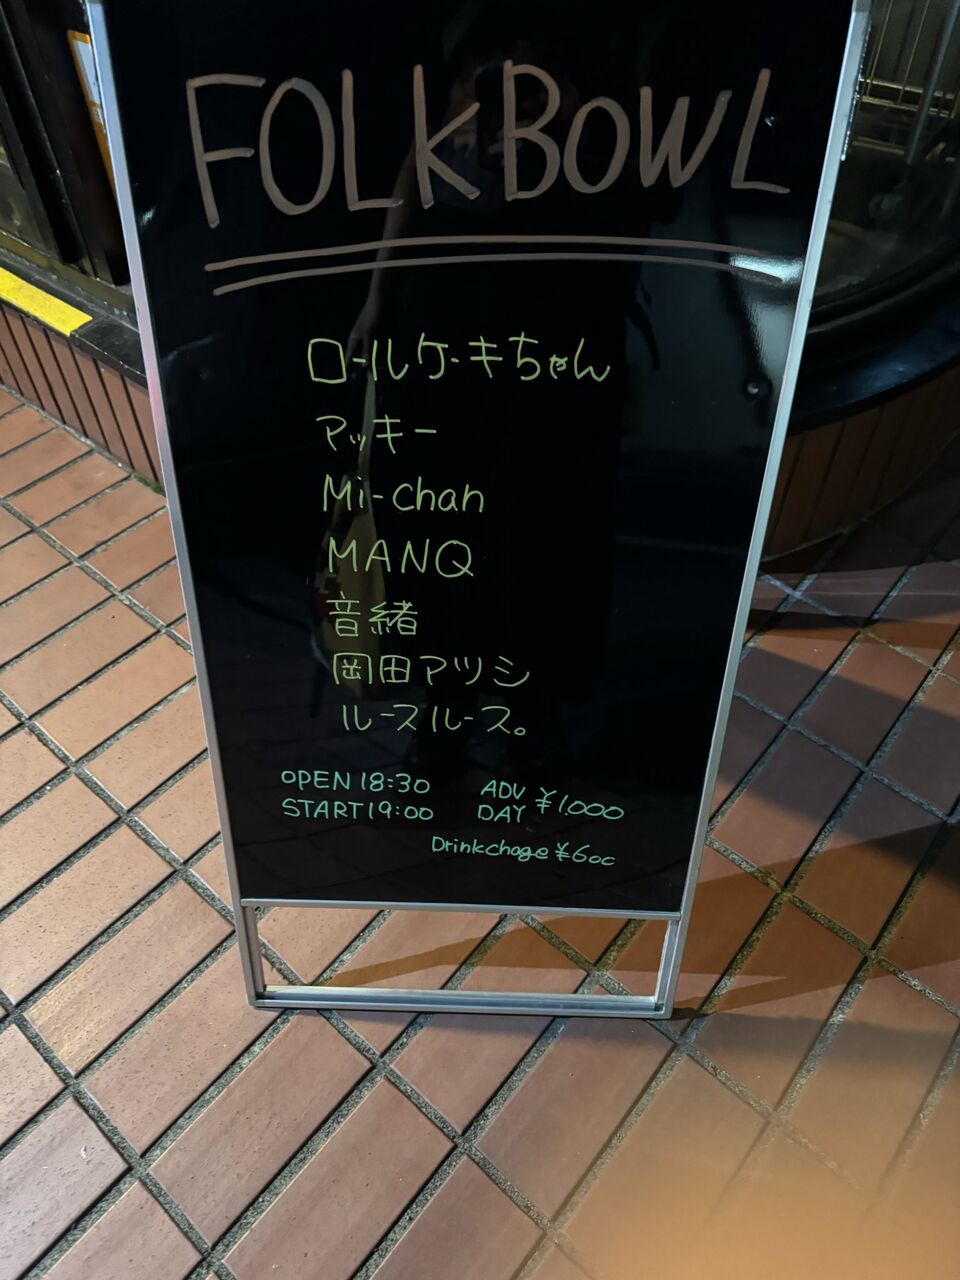 FOLKBOWL
ロールケーキちゃん
アッキー
Mi-chan
MANQ
音緒
岡田アツシ
ルースルース。
OPEN 18:30 ADV ¥1,000
START 19:00 DAY
Drinkchage ¥600